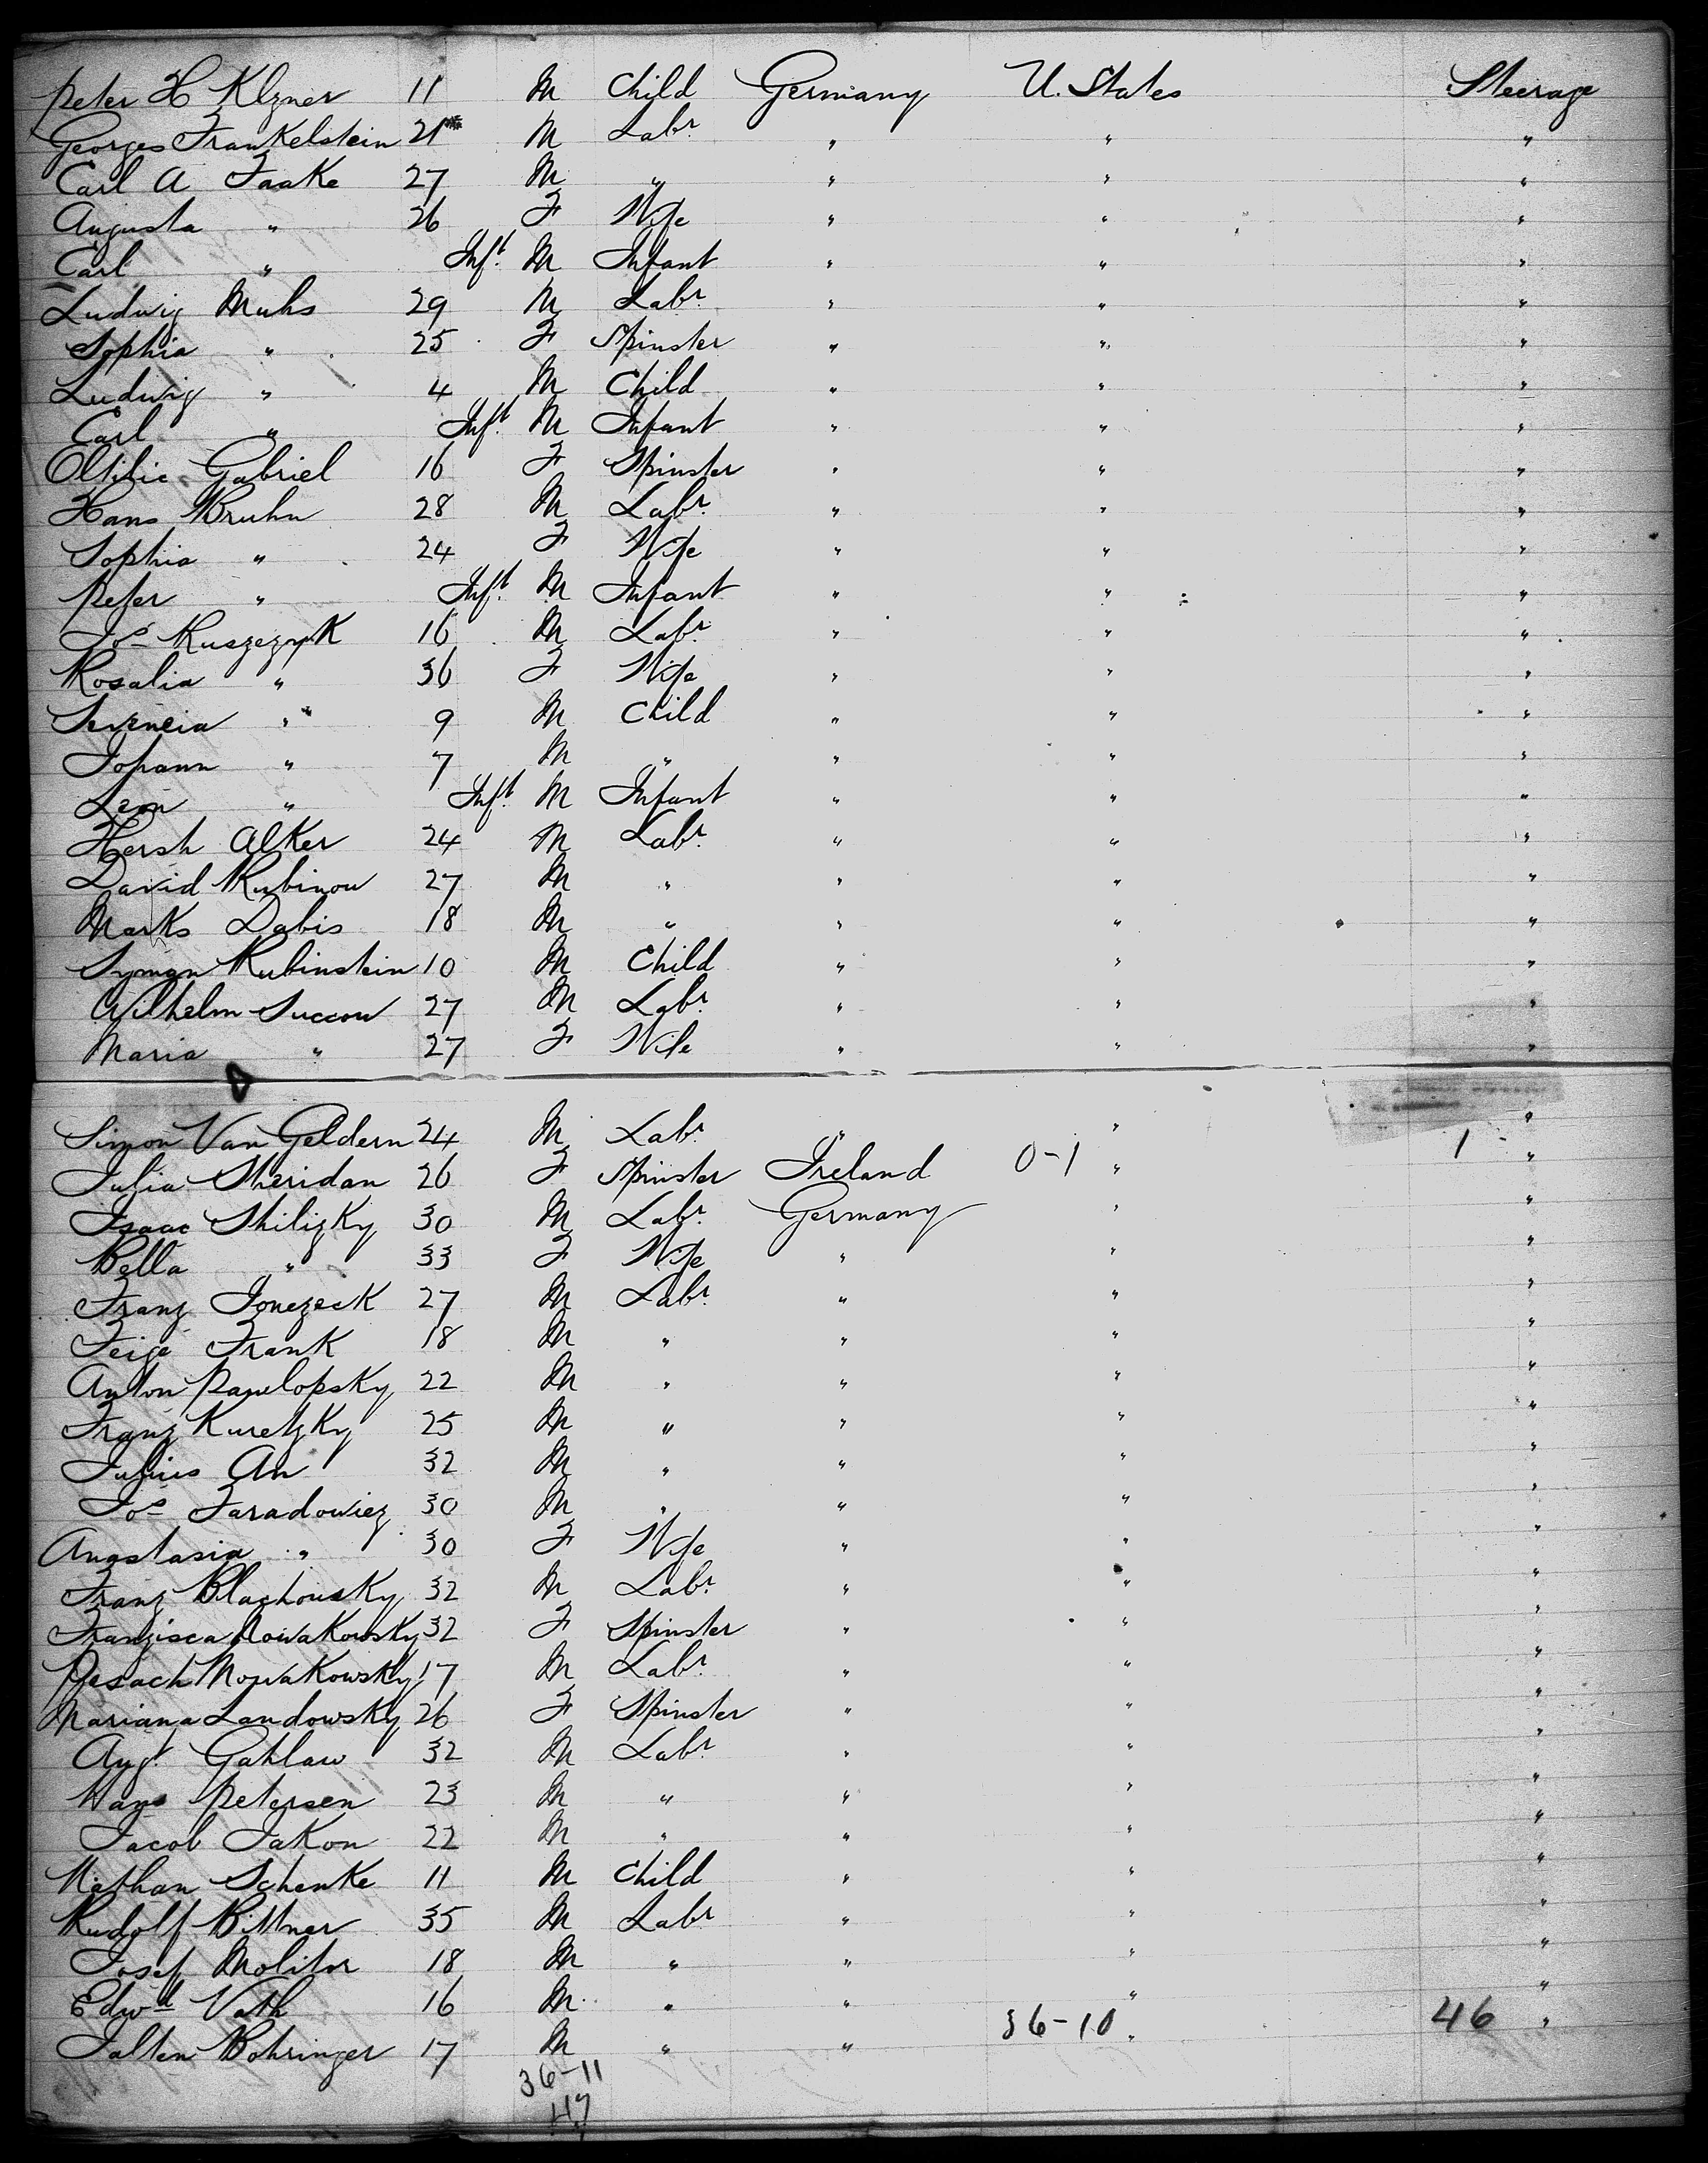 Peter H Klzner 11 M Child Germany U. States Steerage
Georges Frankelstein 21 M Labr " " "
Carl A Faake 27 M " " " "
Augusta " 26 F Wife " " "
Carl " Inft. M Infant " " "
Ludwig Muhs 29 M Labr " " "
Sophia " 25 F Spinster " " "
Ludwig " 4 M Child " " "
Carl " Inft. M Infant " " "
Ottilie Gabriel 16 F Spinster " " "
Hans Bruhn 28 M Labr. " " "
Sophia " 24 F Wife " " "
Peter " Inft. M Infant " " "
Jos Ruszczyk 16 M Labr " " "
Rosalia " 36 F Wife " " "
" 9 M Child " " "
Johann " 7 M " " " "
Leon " Inft. M Infant " " "
Hersh Alker 24 M Labr. " " "
David Rubinow 27 M " " " "
Marks Dabis 18 M " " " "
Symon Rubinstein 10 M Child " " "
Wilhelm Succow 27 M Labr. " " "
Maria " 27 F Wife " " "
Simon Van Geldern 24 M Labr " " "
Julia Sheridan 26 F Spinster Ireland 0-1 " 1 "
Isaac Shilizky 30 M Labr. Germany " "
Bella " 33 F Wife " " "
Franz Jonezeck 27 M Labr. " " "
Feige Frank 18 M " " " "
Anton Pawlopsky 22 M " " " "
Franz Kuretzky 25 M " " " "
Julius An 32 M " " " "
Jos Faradowicz 30 M " " " "
Anastasia " 30 F Wife " " "
Franz Blachousky 32 M Labr. " " "
Franzisca Nowakowsky 32 F Spinster " " "
Pesach Nowakowsky 17 M Labr. " " "
Mariana Landowsky 26 F Spinster " " "
Augt. Gahlaw 32 M Labr. " " "
Hans Petersen 23 M " " " "
Jacob Jakon 22 M " " " "
Nathan Schenke 11 M Child " " "
Rudolf Bittner 35 M Labr " " "
Josef Molitor 18 M " " " "
Edwd Vath 16 M " " " "
Bohringer 17 M " " 36-10 " 46 "
36-11
47